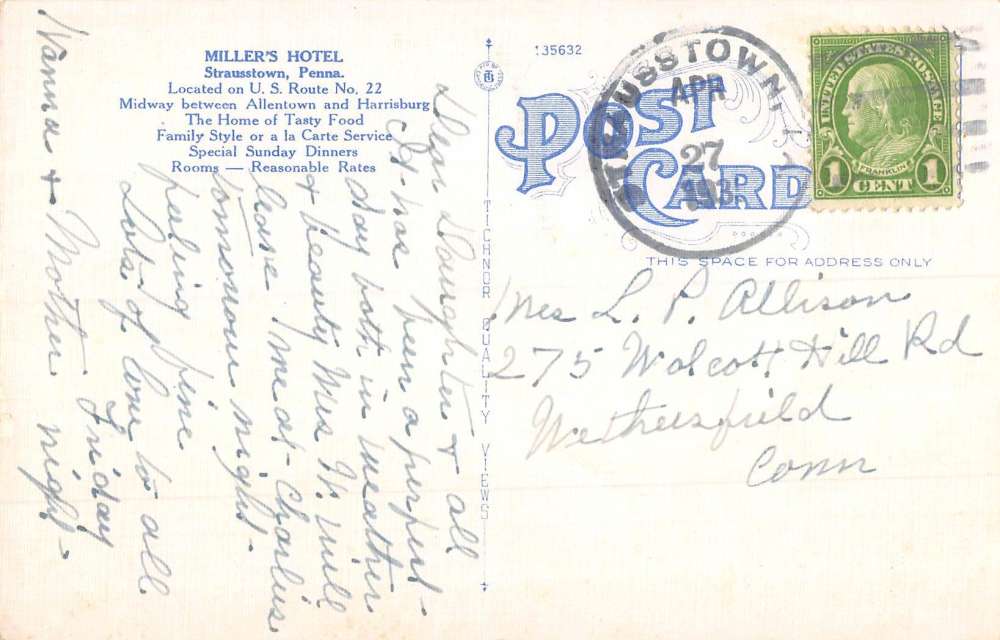 MILLER'S HOTEL
Strausstown, Penna.
Located on U. S. Route No. 22
Midway between Allentown and Harrisburg
The Home of Tasty Food
Family Style or a la Carte Service
Special Sunday Dinners
Rooms — Reasonable Rates
Dear Daughter & all
It has been a perfect
day both in weather
& beauty Mrs W. will
leave me at Charlies
tomorrow night.
feeling fine
Lots of love to all
Friday night.
Nanna & Mother
TICHNOR QUALITY VIEWS
135632
POST CARD
STRAUSSTOWN,
APR
27
193
UNITED STATES POSTAGE
FRANKLIN
1 CENT 1
THIS SPACE FOR ADDRESS ONLY
Mrs L. P. Allison
275 Wolcott Hill Rd
Wethersfield
Conn